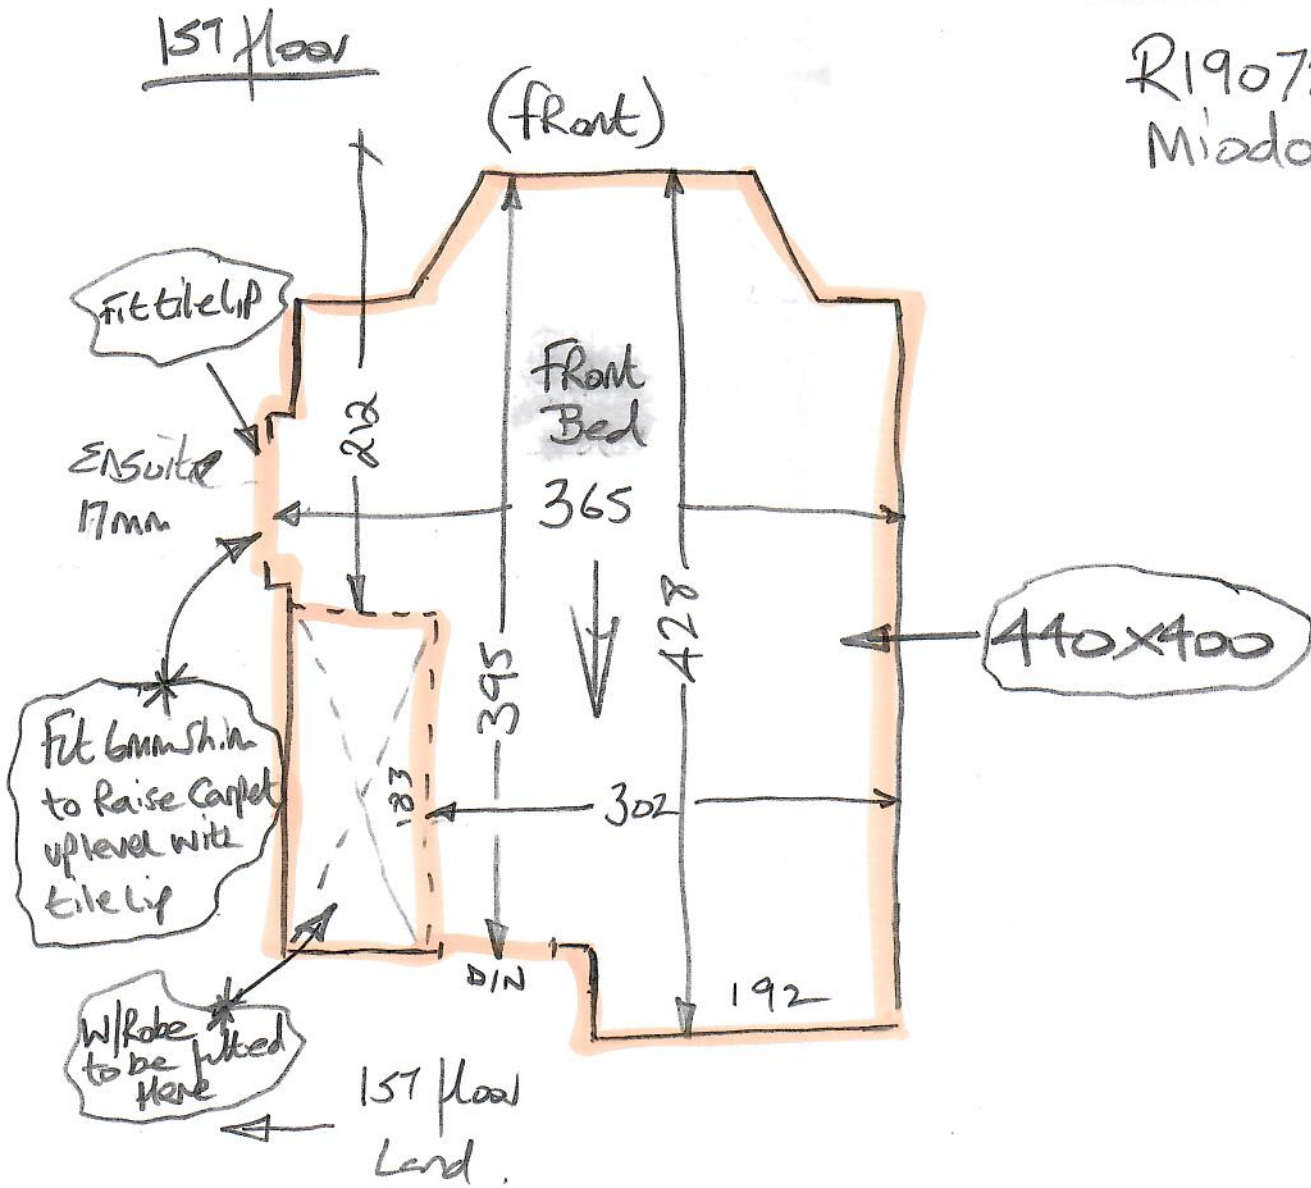 1ST floor
(fRont)
R1907
Miodo
Fit tile lip
212
FRont
Bed
Ensuite
17mm
365
428
440x400
395
Fit 6mm Shim
to Raise Carpet
up level with
tile lip
183
302
D/N
192
W/Robe
to be fitted
Here
1ST floor
Land.